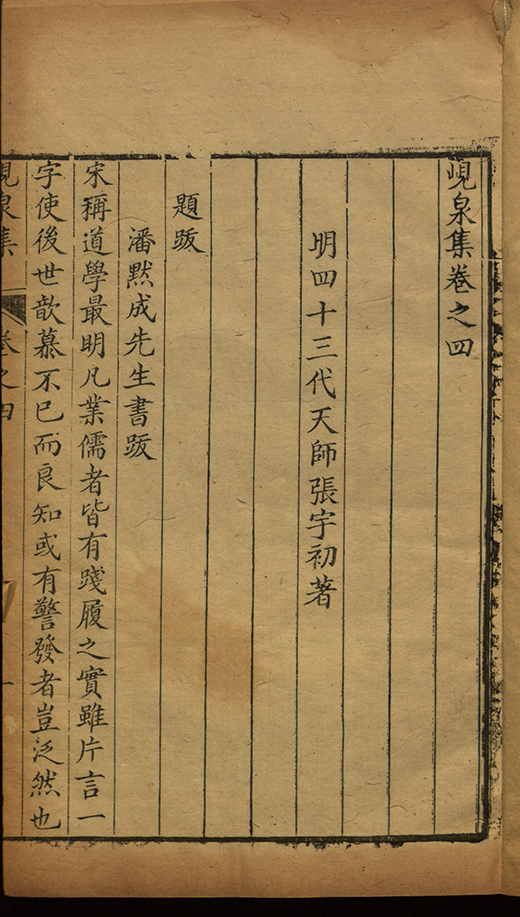 峴泉集卷之四
明四十三代天師張宇初著
題跋
潘黙成先生書跋
宋稱道學最明凡業儒者皆有踐履之實雖片言一
字使後世歆慕不已而良知或有警發者豈泛然也
峴泉集 卷之四 一